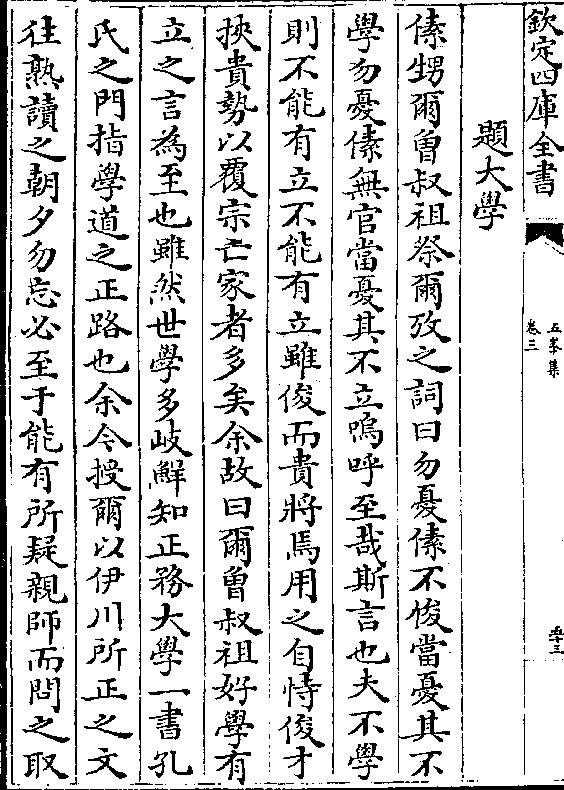 欽定四庫全書
五峯集
卷三
五十三
題大學
傃甥爾曾叔祖祭爾攷之詞曰勿憂傃不悛當憂其不
學勿憂傃無官當憂其不立嗚呼至哉斯言也夫不學
則不能有立不能有立雖俊而貴將焉用之自恃俊才
挾貴勢以覆宗亡家者多矣余故曰爾曾叔祖好學有
立之言為至也雖然世學多岐鮮知正務大學一書孔
氏之門指學道之正路也余今授爾以伊川所正之文
往熟讀之朝夕勿忘必至于能有所疑親師而問之取